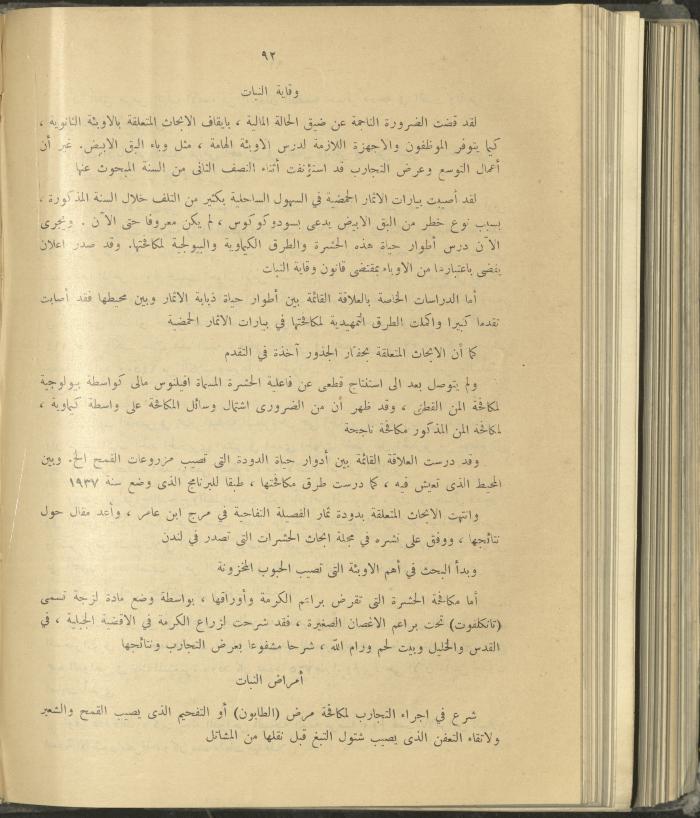 ٩٢
وقاية النبات
لقد قضت الضرورة الناجمة عن ضيق الحالة المالية ، بايقاف الابحاث المتعلقة بالاوبئة الثانويه ،
كيما يتوفر الموظفون والاجهزة اللازمة لدرس الاوبئة الهامة ، مثل وباء البق الابيض. غير أن
أعمال التوسع وعرض التجارب قد استؤنفت أثناء النصف الثانى من السنة المبحوث عنها
لقد أصيبت بيارات الاثمار الحمضية في السهول الساحلية بكثير من التلف خلال السنة المذكورة ،
بسبب نوع خطر من البق الابيض يدعى بسودوكوكوس ، لم يكن معروفا حتى الآن . وتجرى
الآن درس أطوار حياة هذه الحشرة والطرق الكيماوية والبيولجية لمكافحتها. وقد صدر اعلان
يقضى باعتبارها من الاوباء بمقتضى قانون وقاية النبات
أما الدراسات الخاصة بالعلاقة القائمة بين أطوار حياة ذبابة الاثمار وبين محيطها فقد أصابت
تقدما كبيرا واكملت الطرق التمهيدية لمكافحتها في بيارات الاثمار الحمضية
كما أن الابحاث المتعلقة بحفار الجذور آخذة في التقدم
ولم يتوصل بعد الى استنتاج قطعى عن فاعلية الحشرة المسماة افيلنوس مالى كواسطة بيولوجية
لمكافحة المن القطنى ، وقد ظهر أن من الضرورى اشتمال وسائل المكافحة على واسطة كيماوية ،
لمكافحة المن المذكور مكافحة ناجحة
وقد درست العلاقة القائمة بين أدوار حياة الدودة التى تصيب مزروعات القمح الخ. وبين
المحيط الذى تعيش فيه ، كما درست طرق مكافحتها ، طبقا للبرنامج الذى وضع سنة ١٩٣٧
وانتهت الابحاث المتعلقة بدودة ثمار الفصيلة التفاحية في مرج ابن عامر ، وأعد مقال حول
نتائجها ، ووفق على نشره في مجلة ابحاث الحشرات التى تصدر في لندن
وبدأ البحث في أهم الاوبئة التى تصيب الحبوب المخزونة
أما مكافحة الحشرة التى تقرض براعم الكرمة وأوراقها ، بواسطة وضع مادة لزجة تسمى
(تانكلفوت) تحت براعم الاغصان الصغيرة ، فقد شرحت لزراع الكرمة في الاقضية الجبلية ، في
القدس والخليل وبيت لحم ورام الله ، شرحا مشفوعا بعرض التجارب ونتائجها
أمراض النبات
شرع في اجراء التجارب لمكافحة مرض (الطابون) أو التفحيم الذى يصيب القمح والشعير
ولاتقاء التعفن الذى يصيب شتول التبغ قبل نقلها من المشاتل